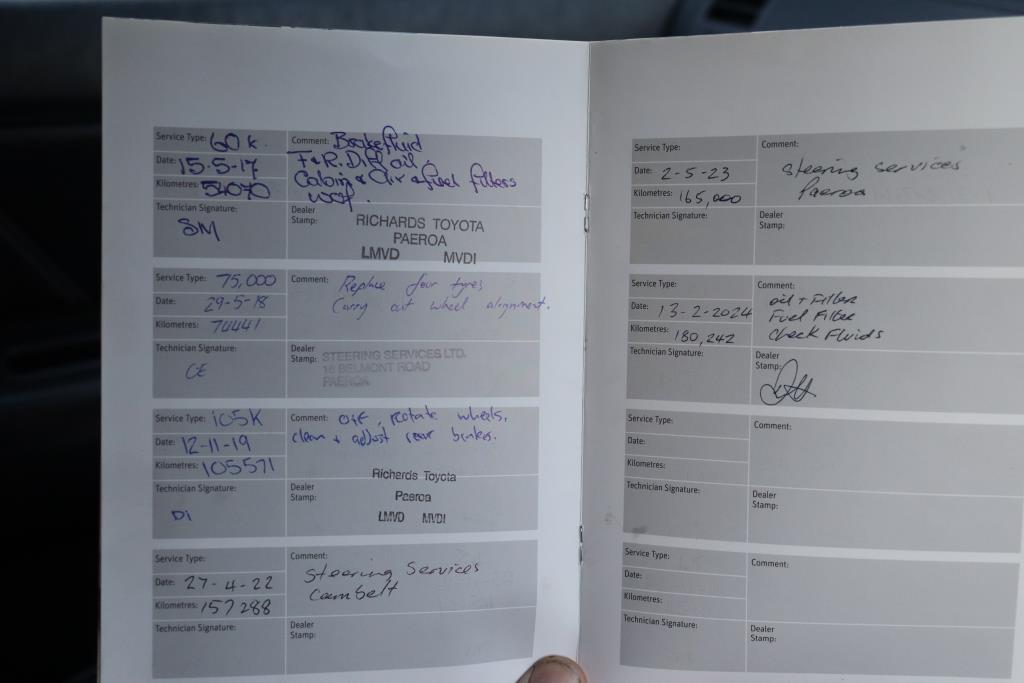 Service Type: 60k.
Comment: Brakefluid
Date: 15-5-17
F&R. Diff oil,
Kilometres: 54070
Cabin & Air & fuel filters
WOF.
Technician Signature:
SM
Dealer
Stamp:
RICHARDS TOYOTA
PAEROA
LMVD MVDI
Service Type: 75,000
Comment: Replace four tyres
Date: 29-5-18
Carry out wheel alignment.
Kilometres: 74441
Technician Signature:
CE
Dealer
Stamp:
STEERING SERVICES LTD.
16 BELMONT ROAD
PAEROA
Service Type: 105K
Comment: O+F, rotate wheels,
Date: 12-11-19
clean + adjust rear brakes.
Kilometres: 105571
Technician Signature:
Di
Dealer
Stamp:
Richards Toyota
Paeroa
LMVD MVDI
Service Type:
Comment:
Steering Services
Date: 27-4-22
Cambelt
Kilometres: 157288
Technician Signature:
Dealer
Stamp:
Service Type:
Comment:
Steering Services
Date: 2-5-23
Paeroa
Kilometres: 165,000
Technician Signature:
Dealer
Stamp:
Service Type:
Comment:
oil + Filter
Date: 13-2-2024
Fuel Filter
Kilometres: 180,242
Check Fluids
Technician Signature:
Dealer
Stamp:
Service Type:
Comment:
Date:
Kilometres:
Technician Signature:
Dealer
Stamp:
Service Type:
Comment:
Date:
Kilometres:
Technician Signature:
Dealer
Stamp: